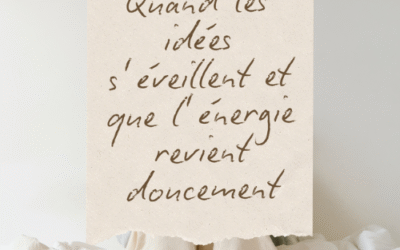 Quand les
idées
s'éveillent et
que l'énergie
revient
doucement